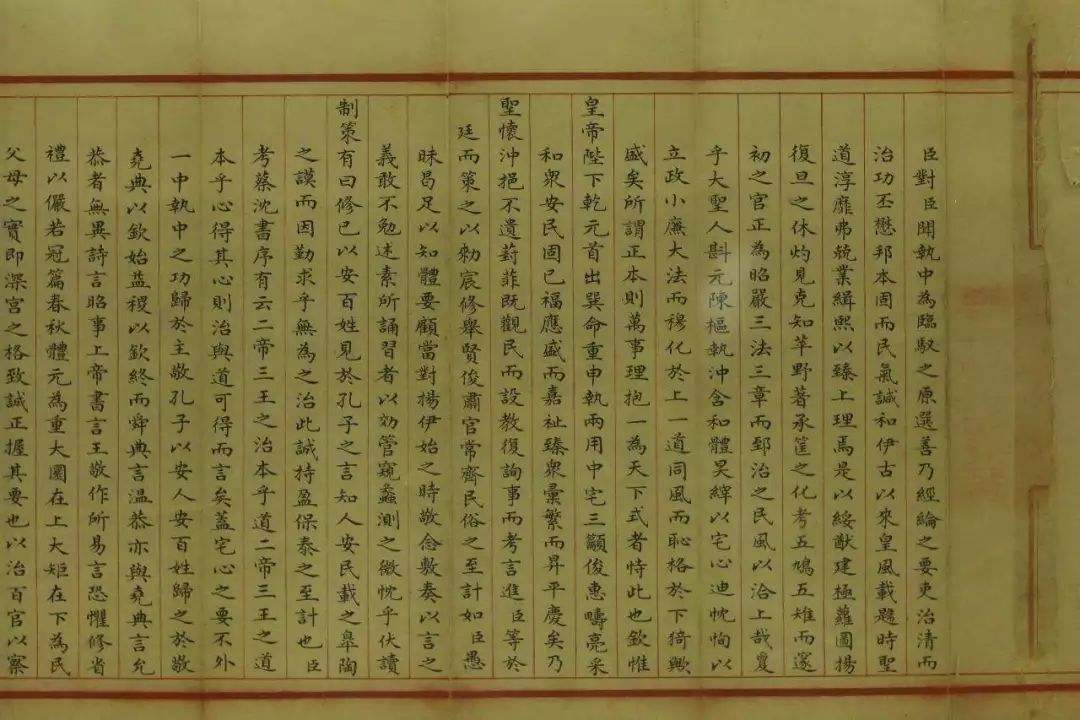 臣對臣聞執中為臨馭之原選善乃經綸之要吏治清而
治功丕懋邦本固而民氣諴和伊古以來皇風載題時聖
道淳靡弗兢業緝熙以臻上理焉是以綏猷建極蘿圖揚
復旦之休灼見克知苹野著承筐之化考五鳩五雉而邃
初之官正為昭嚴三法三章而郅治之民風以洽上哉夐
乎大聖人斟元陳樞執沖含和體昊緯以宅心迪忱恂以
立政小廉大法而穆化於上一道同風而恥格於下猗歟
盛矣所謂正本則萬事理抱一為天下式者恃此也欽惟
皇帝陛下乾元首出巽命重申執兩用中宅三籲俊惠疇亮采
和眾安民固已福應盛而嘉祉臻眾彙繁而昇平慶矣乃
聖懷沖挹不遺葑菲既觀民而設教復詢事而考言進臣等於
廷而策之以勑宸修舉賢俊肅官常齊民俗之至計如臣愚
昧曷足以知體要顧當對揚伊始之時敬念敷奏以言之
義敢不勉述素所誦習者以効管窺蠡測之微忱乎伏讀
制策有曰修己以安百姓見於孔子之言知人安民載之皋陶
之謨而因勤求乎無為之治此誠持盈保泰之至計也臣
考蔡沈書序有云二帝三王之治本乎道二帝三王之道
本乎心得其心則治與道可得而言矣蓋宅心之要不外
一中執中之功歸於主敬孔子以安人安百姓歸之於敬
堯典以欽始益稷以欽終而舜典言溫恭亦與堯典言允
恭者無異詩言昭事上帝書言王敬作所易言恐懼修省
禮以儼若冠篇春秋體元為重大圜在上大矩在下為民
父母之實即深宮之格致誠正握其要也以治百官以察